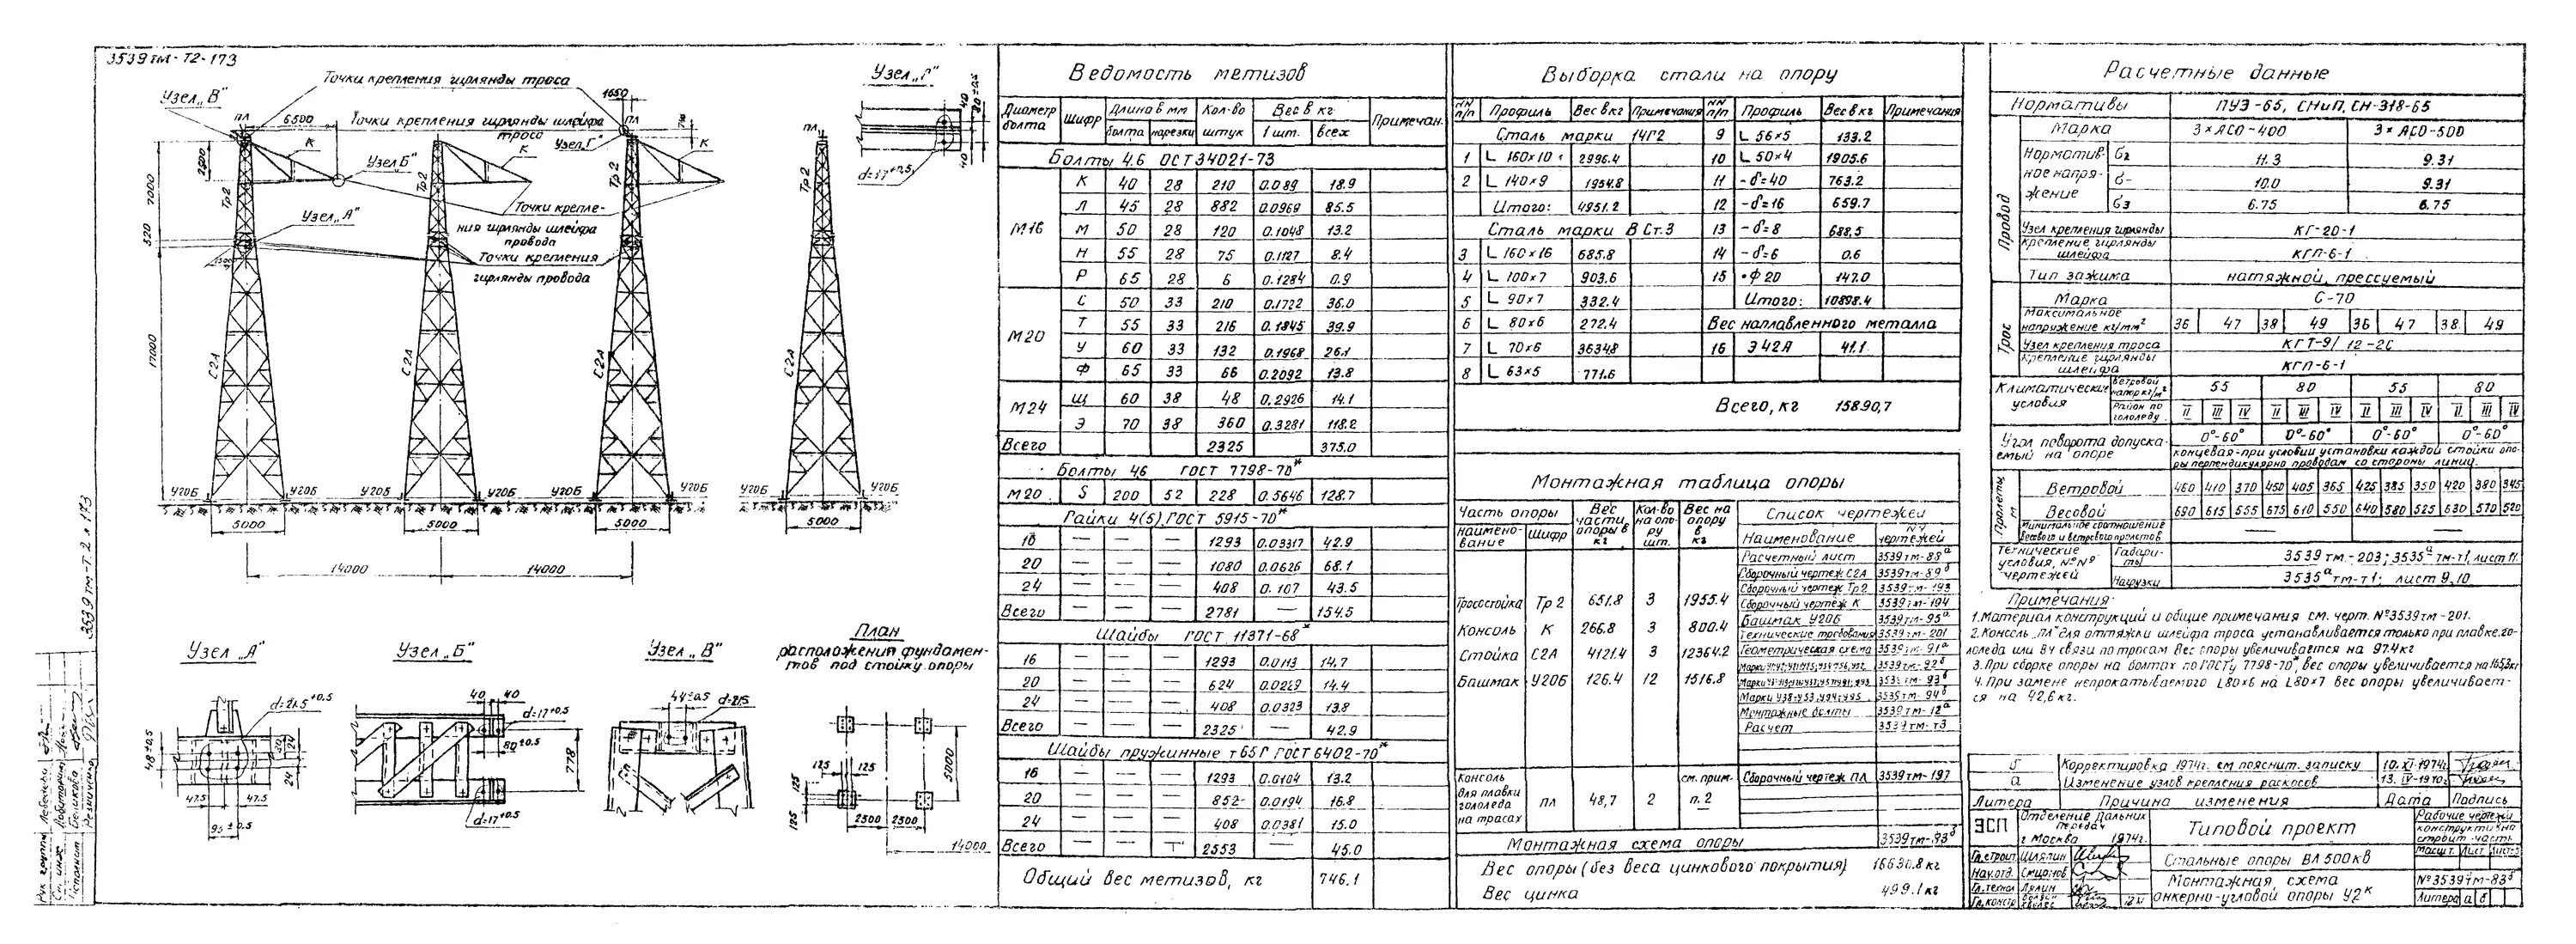 3539тм-Т2-173
Точки крепления гирлянды троса
Узел „В"
Точки крепления гирлянды шлейфа
троса
Узел „Г"
Узел „Б"
Узел „А"
Точки крепле-
ния гирлянды шлейфа
провода
Точки крепления
гирлянды провода
6500
1650
пл
пл
пл
К
К
К
Тр2
Тр2
Тр2
Тр2
2500
7000
520
17000
С2А
С2А
С2А
С2А
У20Б У20Б У20Б У20Б У20Б У20Б У20Б У20Б
5000 5000 5000 5000
14000 14000
Узел „Г"
d=17+0,5
40
40
3539тм-Т.2 л 173
Узел „А"
d=21.5+0.5
48±0.5
24
24
47.5 47.5
95±0.5
Узел „Б"
40 40
d=17+0.5
80±0.5
778
d=17+0.5
Узел „В"
44±0.5
d=21.5
План
расположения фундамен-
тов под стойку опоры
125 125
125
125
5000
2500 2500
14000
Ведомость метизов
Диаметр болта Шифр Длина в мм Кол-во Вес в кг Примечан.
болта нарезки штук 1 шт. всех
Болты 4.6 ОСТ 34021-73
М16
К 40 28 210 0.089 18.9
Л 45 28 882 0.0969 85.5
М 50 28 120 0.1048 13.2
Н 55 28 75 0.1127 8.4
Р 65 28 6 0.1284 0.9
М20
С 50 33 210 0.1722 36.0
Т 55 33 216 0.1845 39.9
У 60 33 132 0.1968 26.1
Ф 65 33 66 0.2092 13.8
М24
Щ 60 38 48 0.2926 14.1
Э 70 38 360 0.3281 118.2
Всего 2325 375.0
Болты 46 ГОСТ 7798-70*
М20 S 200 52 228 0.5646 128.7
Гайки 4(5) ГОСТ 5915-70*
16 — — — 1293 0.03317 42.9
20 — — — 1080 0.0626 68.1
24 — — — 408 0.107 43.5
Всего — — — 2781 — 154.5
Шайбы ГОСТ 11371-68*
16 — — — 1293 0.0113 14.7
20 — — — 624 0.0229 14.4
24 — — — 408 0.0323 13.8
Всего — — — 2325 — 42.9
Шайбы пружинные т 65Г ГОСТ 6402-70*
16 — — — 1293 0.0104 13.2
20 — — — 852 0.0194 16.8
24 — — — 408 0.0381 15.0
Всего — — — 2553 — 45.0
Общий вес метизов, кг 746.1
Выборка стали на опору
NN п/п Профиль Вес в кг Примечания NN п/п Профиль Вес в кг Примечания
Сталь марки 14Г2 9 L 56×5 133.2
1 L 160×10 2996.4 10 L 50×4 1905.6
2 L 140×9 1954.8 11 -δ=40 763.2
Итого: 4951.2 12 -δ=16 659.7
Сталь марки В Ст.3 13 -δ=8 688,5
3 L 160×16 685.8 14 -δ=6 0.6
4 L 100×7 903.6 15 •Ф 20 147.0
5 L 90×7 332.4 Итого: 10898.4
6 L 80×6 272.4 Вес наплавленного металла
7 L 70×6 3634.8 16 Э42А 41.1
8 L 63×5 771.6
Всего, кг 15890,7
Монтажная таблица опоры
Часть опоры Вес части опоры в кг Кол-во на опору шт. Вес на опору в кг Список чертежей
наимено-вание Шифр Наименование NN чертежей
Расчетный лист 3539тм-88а
Сборочный чертеж С2А 3539тм-89б
Сборочный чертеж Тр2 3539тм-193
Тросостойка Тр 2 651.8 3 1955.4 Сборочный чертеж К 3539тм-194
Башмак У20Б 3539тм-95а
Консоль К 266.8 3 800.4 Технические требования 3539тм-201
Стойка С2А 4121.4 3 12364.2 Геометрическая схема 3539тм-91а
Башмак У20Б 126.4 12 1516.8
Монтажные болты 3539тм-12а
Расчет 3539тм-т3
Консоль для плавки гололеда на тросах пл 48,7 2 см. прим. п. 2 Сборочный чертеж ПЛ 3539тм-197
Монтажная схема опоры 3539тм-83б
Вес опоры (без веса цинкового покрытия) 16630.8 кг
Вес цинка 499.1 кг
Расчетные данные
Нормативы ПУЭ-65, СНиП, СН-318-65
Провод
Марка 3×АСО-400 3×АСО-500
Норматив-ное напря-жение
σг 11.3 9.31
σ- 10.0 9.31
σэ 6.75 6.75
Узел крепления гирлянды КГ-20-1
Крепление гирлянды шлейфа КГП-6-1
Тип зажима натяжной, прессуемый
Трос
Марка С-70
Максимальное напряжение кг/мм² 36 47 38 49 36 47 38 49
Узел крепления троса КГТ-9/12-2С
Крепление гирлянды шлейфа КГП-6-1
Климатические условия
Ветровой напор кг/м² 55 80 55 80
Район по гололеду II III IV II III IV II III IV II III IV
Угол поворота допуска-емый на опоре 0°-60° 0°-60° 0°-60° 0°-60°
концевая-при условии установки каждой стойки опо-
ры перпендикулярно проводам со стороны линии.
Пролеты м
Ветровой 460 410 370 450 405 365 425 385 350 420 380 345
Весовой 690 615 555 675 610 550 640 580 525 630 570 520
Минимальное соотношение весового и ветрового пролетов —
Технические условия, №№ чертежей
Габари-ты 3539тм-203; 3535а тм-т1, лист 11.
Нагрузки 3535а тм-т1; лист 9,10
Примечания:
1. Материал конструкций и общие примечания см. черт. №3539тм-201.
2. Консоль „ПЛ" для оттяжки шлейфа троса устанавливается только при плавке го-
лоледа или ВЧ связи по тросам Вес опоры увеличивается на 97.4 кг
3. При сборке опоры на болтах по ГОСТу 7798-70*, вес опоры увеличивается на 165,3кг
4. При замене непрокатываемого L80×6 на L80×7 вес опоры увеличивает-
ся на 42,6 кг.
б Корректировка 1974г. см поясн­ит. записку 10.XI-1974г.
а Изменение узлов крепления раскосов 13.IV-1970г.
Литера Причина изменения Дата Подпись
ЭСП Отделение дальних передач
г Москва 1974г.
Типовой проект
Рабочие чертежи
Стальные опоры ВЛ 500кВ
Масшт. Лист
Монтажная схема
анкерно-угловой опоры У2к
№3539тм-83б
Литера а б
Гл.строит Шляпин
Нач.отд. Смирнов
Гл.констр
Рук группы
Ст. инж